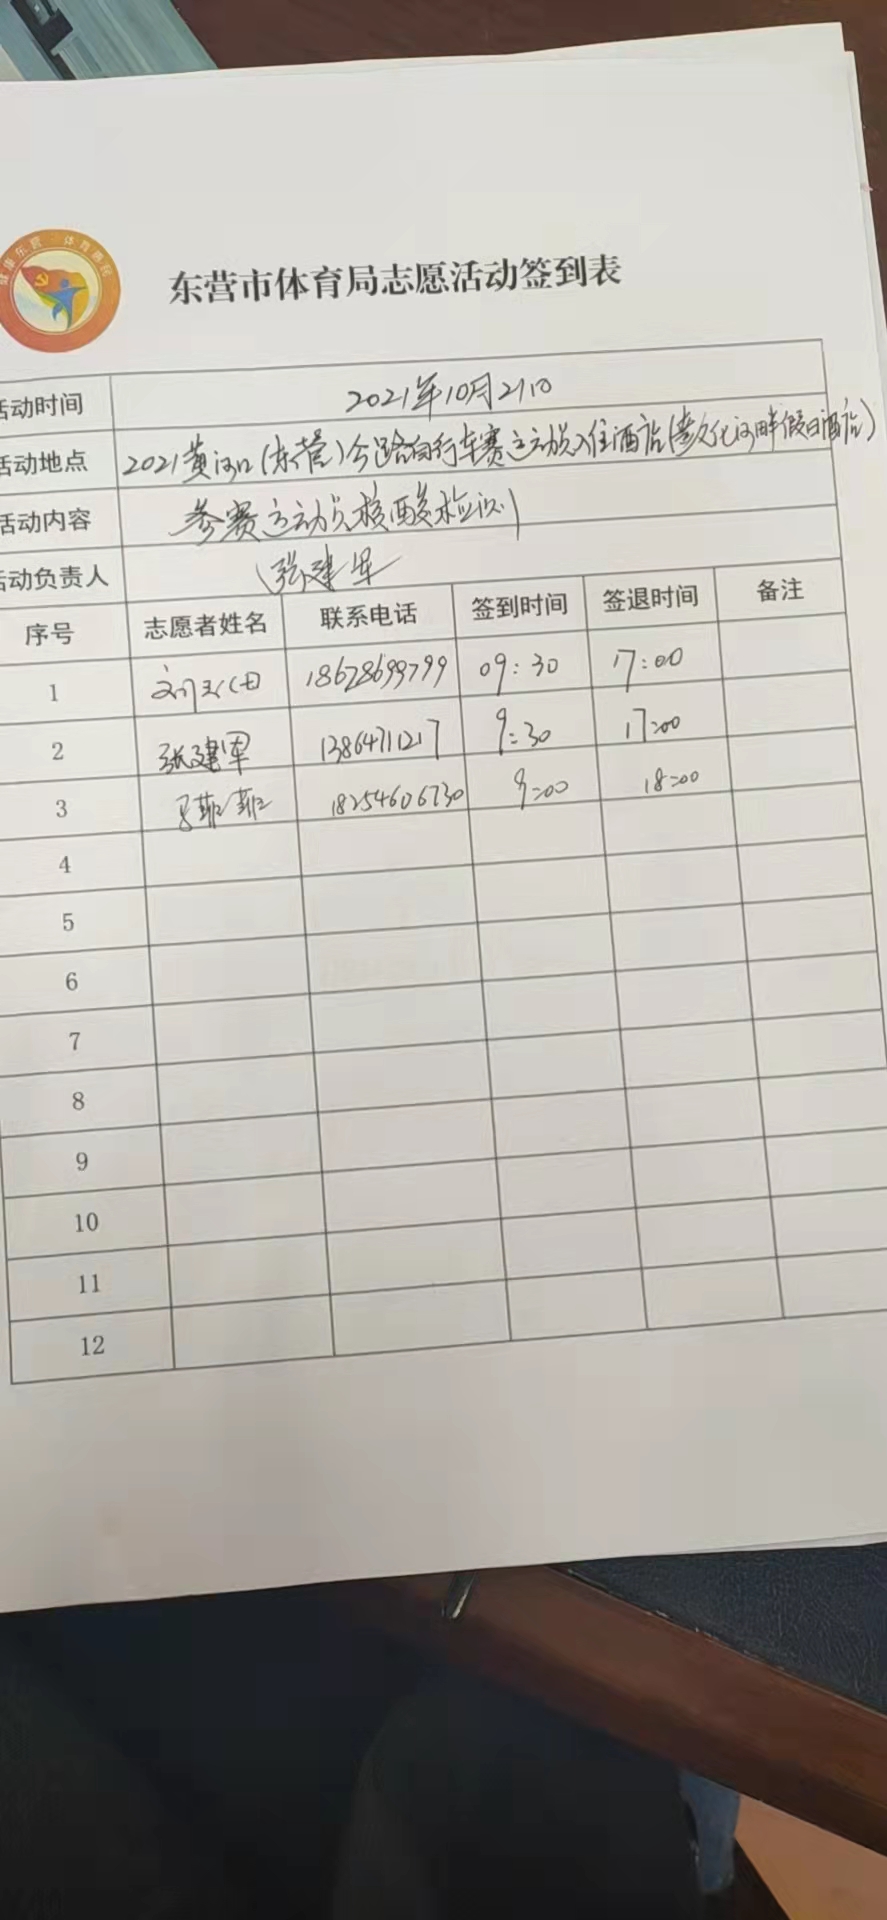 健康东营 体育惠民
东营市体育局志愿活动签到表
活动时间 2021年10月21日
活动地点 2021黄河口(东营)公路自行车赛运动员入住酒店(蓝海河畔假日酒店)
活动内容 参赛运动员核酸检测
活动负责人 张建军
序号 志愿者姓名 联系电话 签到时间 签退时间 备注
1 18678699799 09:30 17:00
2 张建军 13864711217 9:30 17:00
3 菲菲 18254606730 9:00 18:00
4
5
6
7
8
9
10
11
12